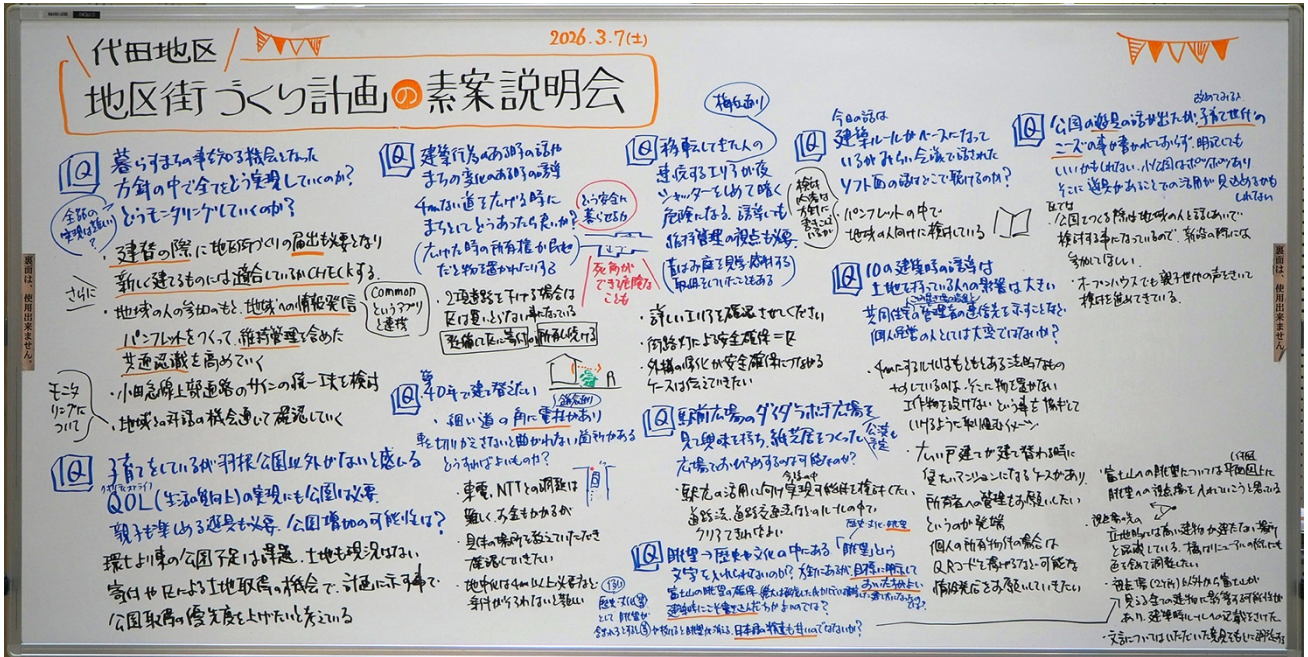 代田地区
2026.3.7(土)
地区街づくり計画の素案説明会
Q 暮らすまちの事を知る機会となった
方針の中で全てをどう実現していくのか?
どうモニタリングしていくのか?
全部の
実現は難しい?
・建替の際に地区街づくりの届出も必要となり
新しく建てるものには適合しているかCHECKする。
さらに
・地域の人の参加のもと、地域への情報発信
パンフレットをつくって、維持管理を含めた
共通認識を高めていく
Common
というアプリ
と連携
・小田急線上部通路のサインの統一工夫を検討
モニタ
リングに
ついて
・地域との対話の機会通して確認していく
Q 子育てをしているが羽根公園以外がないと感じる
QOL(生活の質向上)の実現にも公園は必要
親子も楽しめる遊具も必要。公園増加の可能性は?
環七より東の公園不足は課題。土地も現況はない
寄付や区による土地取得の機会で、計画に示す事で
公園取得の優先度を上げたいと考えている
Q 建築行為のある時の話や
まちの変化のある時の誘導
4mない道を広げる時に
まちとしてどうあったら良いか?
どう安全に
暮らせるか
(広げた時の所有権が民地
だと物を置かれたりする
死角が
できる危険な
ことも
・2項道路を下げる場合は
整備して区に寄付 or 所有し続ける
Q 築40年で建て替えたい
・細い道の角に電柱があり
切り返さないと曲がれない箇所がある
どうすればよいものか?
・東電、NTTとの調整は
難しく、お金もかかるが
・具体の場所を教えていただき
確認していきたい
・地中化は4m以上必要など
条件が揃わないと難しい
Q 移転してきた人の
梅丘通り
建仮するエリアが夜
シャッターをしめて暗く
危険になる。誘導にも
維持管理の視点も必要。
・詳しいエリアを確認させてください
・街路灯による安全確保=区
・外構の緑化が安全確保につながる
ケースは伝えていきたい
Q 駅前広場のダイダラボッチ広場を
見て興味を持ち、紙芝居をつくった
広場でお知らせするのは可能なのか?
・駅広の活用に向け実現可能性を検討したい
道路法、道路交通法などのルールの中で
クリアできればよい
Q 眺望→歴史や文化の中にある「眺望」という
文字を入れられないのか?方針にあるが、目標に明示して
おいた方がよい
歴史・文化・眺望
Q 今日の話は
建築ルールがベースになって
いるがみらい会議で話された
ソフト面の話はどこで聴けるのか?
検討
内容は
方針に
書きこんで
いるが
・パンフレットの中で
地域の人向けに検討している
Q 10の建築時の誘導は
土地を持っている人への影響は大きい
共同住宅の管理者の連絡先を示すことなど
個人経営の人としては大変ではないか?
・4mにするルールはもともとある法的なもの
そこに物を置かない
工作物を設けないという事を担保して
いけるように取り組むイメージ
・大きい戸建てが建て替わる時に
賃貸マンションになるケースがあり
所有者への管理をお願いしたい
というのが発端
個人の所有物件の場合は
QRコードを載せるなど可能な
情報発信をお願いしていきたい
Q 公園の遊具の話が出たが、子育て世代の
ニーズの事が書かれておらず、明記しても
いいかもしれない。小公園はポツポツあり
そこに遊具があることでの活用が見込めるかも
しれない
区では
・公園をつくる際は地域の人と話しあいで
検討する事になっているので、新設の際には
参加してほしい。
・オープンハウスでも親子世代の声をきいて
検討を進めてきている。
・富士山への眺望については平面図上に
眺望への視点場を入れていこうと思っている
・視点場の先の
立地的には高い建物が建たない場所
と認識している。
・視点場(2ヶ所)以外から富士山が
見える全ての建物に影響する可能性が
あり、建築時ルールへの記載をさけた
・文言についてはいただいた意見をもとに調整する
裏面は、使用出来ません。
裏面は、使用出来ません。